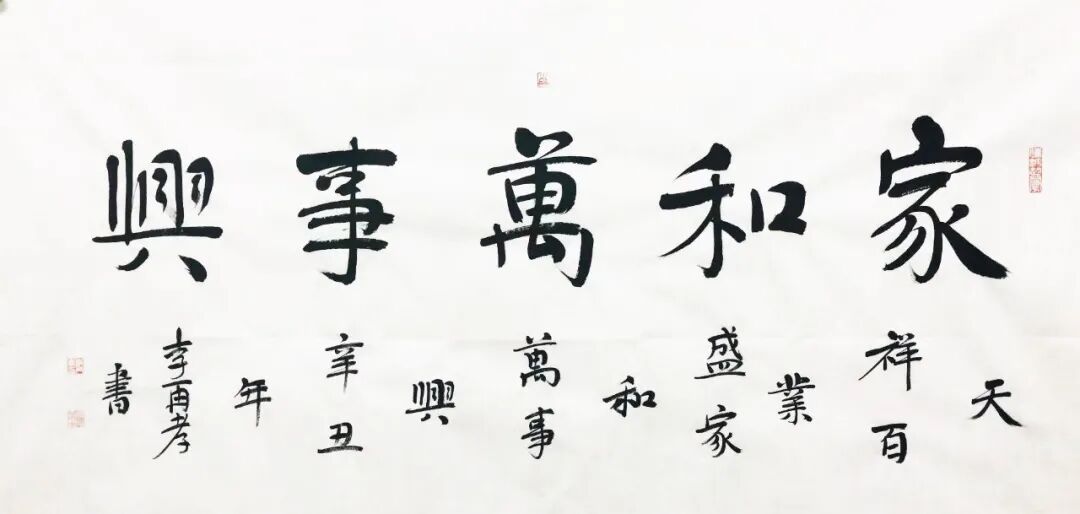 家和萬事興
天祥百業盛家和萬事興
辛丑年李再孝書